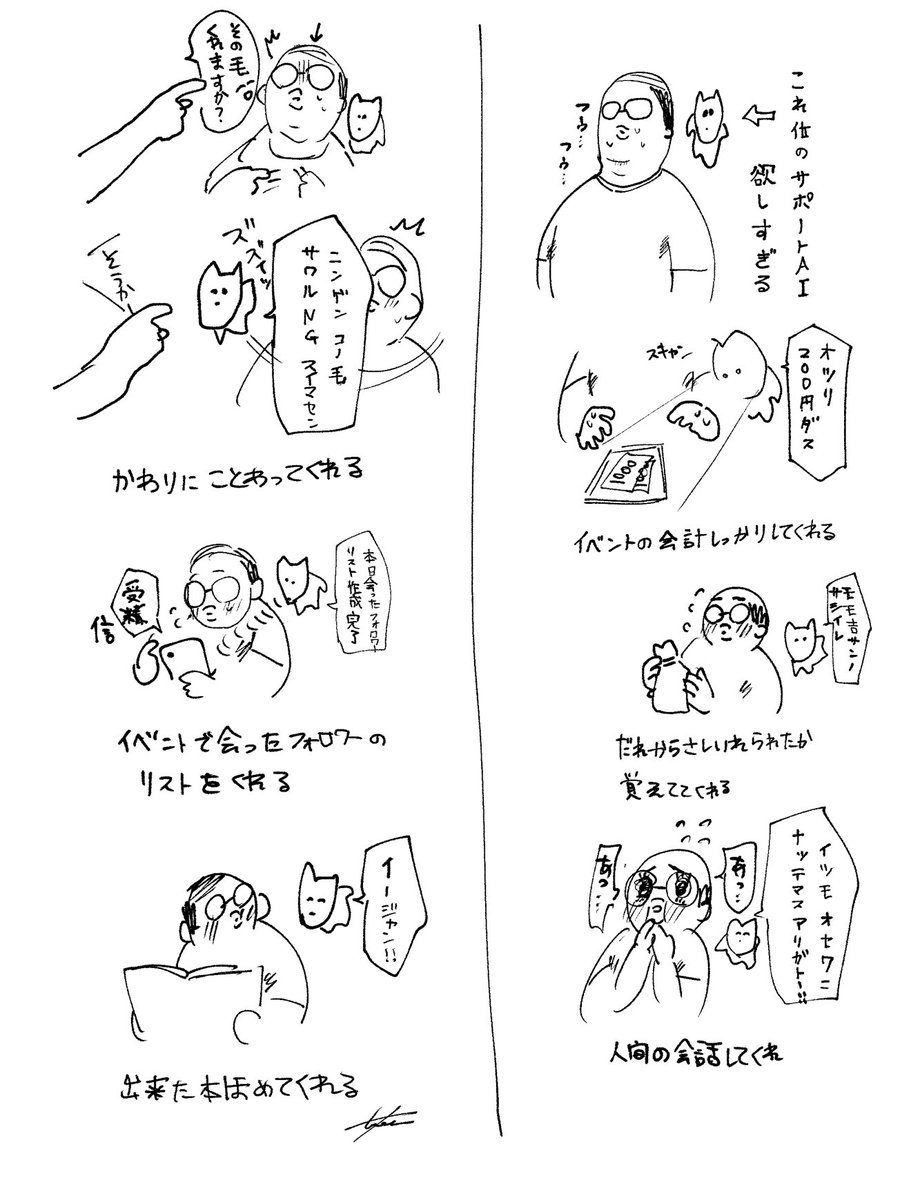 これ位のサポートAI
欲しすぎる
フゥ…
フゥ…
オツリ
200円ダス
スキャン
1000
1000
イベントの会計しっかりしてくれる
モモ吉サンノ
サシイレ
だれからさしいれられたか
覚えててくれる
イツモオセワニ
ナッテマスアリガトー!!
あっ…
あっ…
人間の会話してくれ
その毛
くれますか?
ズズイッ
ニンゲンコノ毛
サワルNGスイマセン
そうか
かわりにことわってくれる
本日会ったフォロワー
リスト作成完了
受精
信
イベントで会ったフォロワーの
リストをくれる
イージャン!!
出来た本ほめてくれる